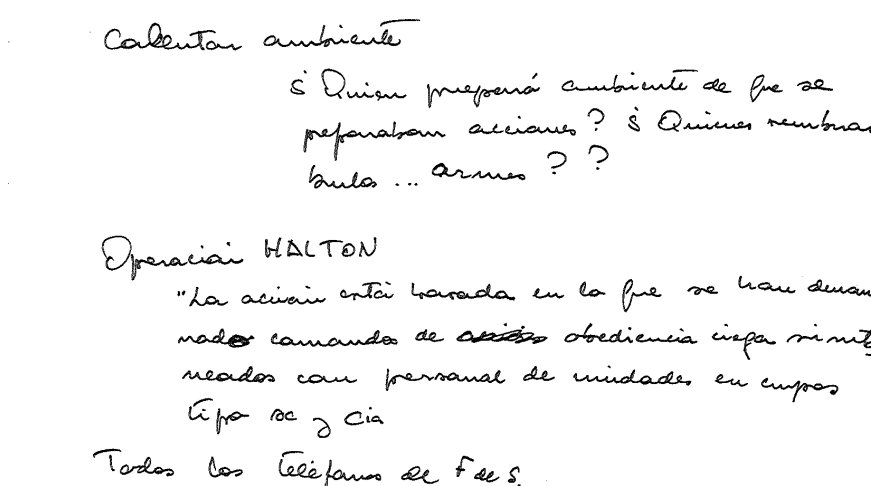 Calentar ambiente
¿Quien preparó ambiente de que se
preparaban acciones? ¿Quienes sembraban
bulos ... armas ? ?
Operación HALTON
"La acción está basada en lo que se han denomi
nado comandos de obediencia ciega
neados con personal de unidades en cupos
tipo sc y cia
Todos los teléfonos de F de S.